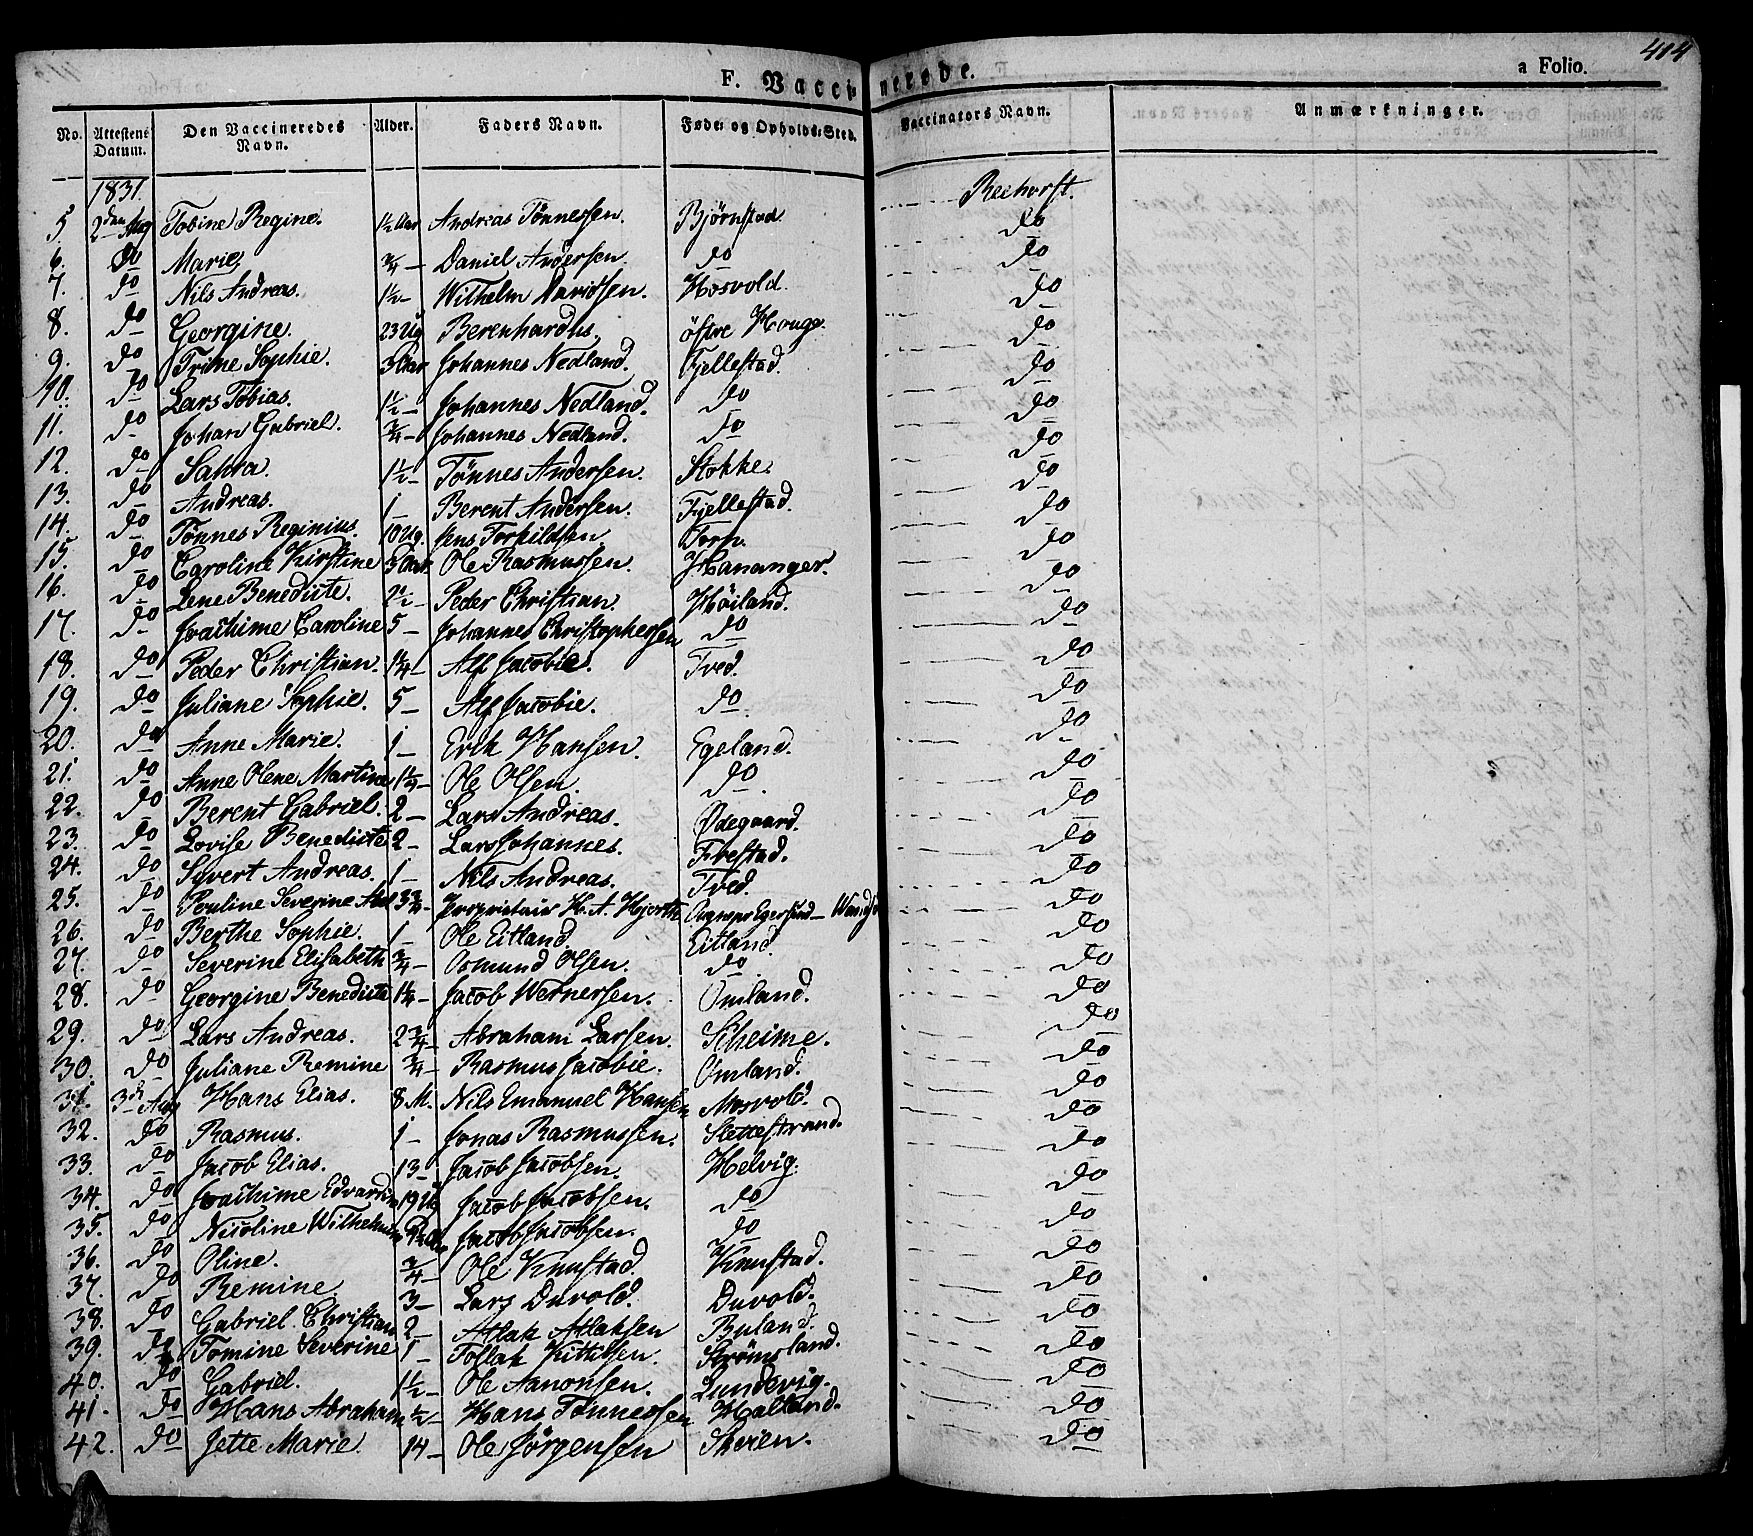 414
F. Vaccinerede. a Folio.
No. Attestens Datum. Den Vaccineredes Navn. Alder. Faders Navn. Føde- og Opholds-Sted. Vaccinators Navn. Anmærkninger.
1831.
5. 2den Aug Tobine Regine. 1½ Aar Andreas Tønnessen. Bjørnstad Reehorst.
6. do Marie. ¾ — Daniel Andersen. do do
7. do Nils Andreas. 1½ — Wilhelm Davidsen. Hosvold. do
8. do Georgine. 23 Ug Berenhardus östre Houge. do
9. do Trine Sophie. 3 Aar Johannes Nedland. Fjellestad. do
10. do Lars Tobias. 1½ — Johannes Nedland. do do
11. do Johan Gabriel. ¾ — Johannes Nedland. do do
12. do Sahra. 1½ — Tønnes Andersen. Stokke. do
13. do Andreas. 1 — Berent Andersen. Fjellestad. do
14. do Tønnes Reginius. 10 Ug. Jens Torkildsen. Torp. do
15. do Caroline Kirstine 3 Aar Ole Rasmussen. Hananger. do
16. do Lene Benedicte. 2½ — Peder Christian. Höiland. do
17. do Joachime Caroline 5 — Johannes Christophersen do do
18. do Peder Christian. 1¼ — Alf Jacobie. Tved. do
19. do Juliane Sophie. 5 — Alf Jacobie. do do
20. do Anne Marie. 1 — Erik Hansen. Egeland. do
21. do Anne Olene Martine Ole Olsen. do do
22. do Berent Gabriel. 2 — Lars Andreas. Ødegaard. do
23. do Lovise Benedicte 2 — Lars Johannes. Frestad. do
24. do Syvert Andreas. 1 — Nils Andreas. Tved. do
25. do Pouline Severine 3¾ — Proprietair H. A. Hjorth do
26. do Berthe Sophie. 1 — Ole Eitland. Eitland. do
27. do Severine Elisabeth ¾ — Osmund Olsen. do do
28. do Georgine Benedicte 1¼ — Jacob Wernersen. Omland. do
29. do Lars Andreas. 2¾ — Abraham Larsen. Scheime. do
30. do Juliane Remine ¾ — Rasmus Jacobie. Omland. do
31. 3die Aug Hans Elias. 8 M. Nils Emanuel Hansen Mosvold. do
32. do Rasmus. 1 — Jonas Rasmussen. Slettestrand. do
33. do Jacob Elias. 13 — Jacob Jacobsen. Helvig. do
34. do Joachime Edvardine 19 Ug Jacob Jacobsen. do do
35. do Nicoline Wilhelmine Jacob Jacobsen. do do
36. do Oline. ¾ — Ole Knustad. Knustad. do
37. do Remine. 3 — Lars Duvold. Duvold. do
38. do Gabriel Christian 2 — Atlak Atlaksen Byland. do
39. do Tomine Severine 1 — Tollak Kittilsen. Strömsland. do
40. do Gabriel. 1½ — Ole Aanonsen. Lundevig. do
41. do Hans Abraham ½ — Hans Tønnessen Halland. do
42. do Jette Marie. 14 — Ole Jörgensen Skeien. do